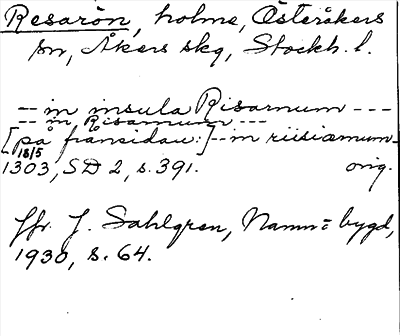 Resarön, holme, Österåkers
sn, Åkers skg, Stockh. l.
-- in insula Risarnum ---
-- in Risarnum ---
[på frånsidan:] -- in riisiærnum --
1303 18/5, SD 2, s. 391. orig.
Jfr. J. Sahlgren, Namn= bygd,
1930, s. 64.